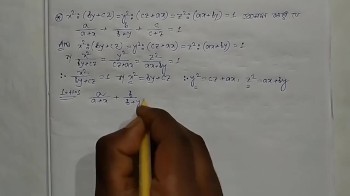 x²:(by+cz)=y²:(cz+ax)=z²:(ax+by)=1
a/(a+x) + b/(b+y) + c/(c+z) = 1
x²:(by+cz)=y²:(cz+ax)=z²:(ax+by)=1
x²/(by+cz) = y²/(cz+ax) = z²/(ax+by) = 1
∴ x²/(by+cz) = 1 বা x²=by+cz ∴ y²=cz+ax, z²=ax+by
L.H.S a/(a+x) + b/(b+y)